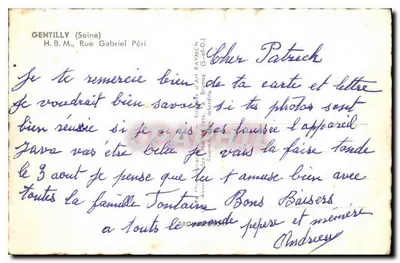 GENTILLY (Seine)
H. B. M., Rue Gabriel Péri
Cher Patrick
Je te remercie bien de ta carte et lettre
Je voudrait bien savoir si tes photos sont
bien réussie si je pas l'appareil
Java vas être belle je vais la faire tonde
le 3 aout je pense que tu t'amuse bien avec
toutes la famille Fontaine Bons Baisers
a touts le monde pepere et mémère
Andrieu